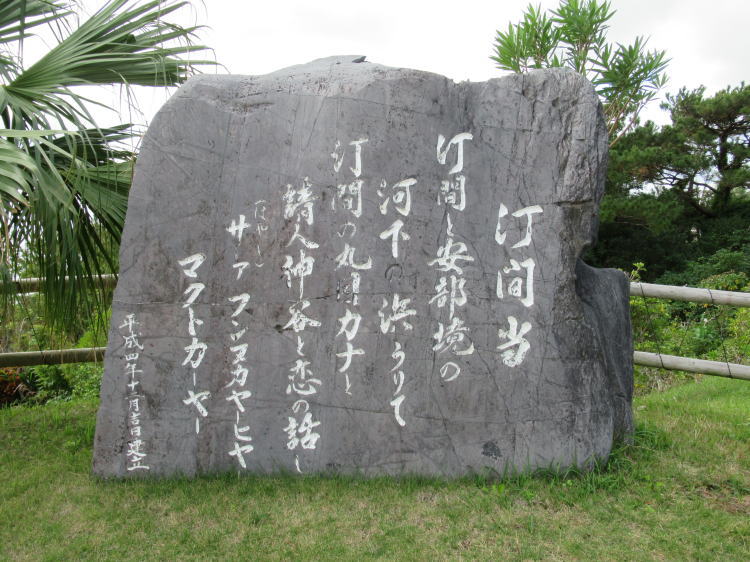 汀間当
汀間と安部境の
河下の浜うりて
汀間の丸目カナと
請人神谷と恋の話し
(はやし)
サァ フンヌカヤヒヤ
マクトカーヤー
平成四年十二月吉日建立